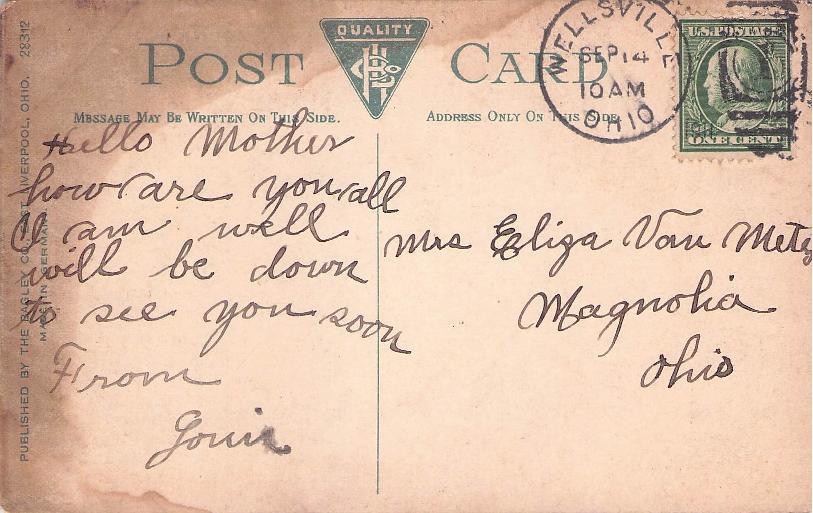 QUALITY
POST CARD
MESSAGE MAY BE WRITTEN ON THIS SIDE.
ADDRESS ONLY ON THIS SIDE
WELLSVILLE
SEP 14
10 AM
OHIO
U.S. POSTAGE
ONE CENT
Hello Mother
how are you all
I am well
will be down
to see you soon
From
Mrs Eliza Van Metz
Magnolia
Ohio
PUBLISHED BY THE BAGLEY CO. EAST LIVERPOOL, OHIO. 28312
MADE IN GERMANY